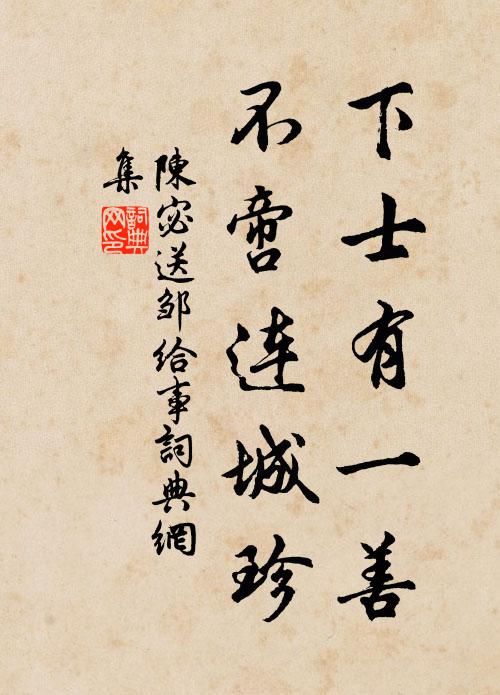 下士有一善
不啻连城珍
陳宓送邹给事詞典網
集
詞典
网印